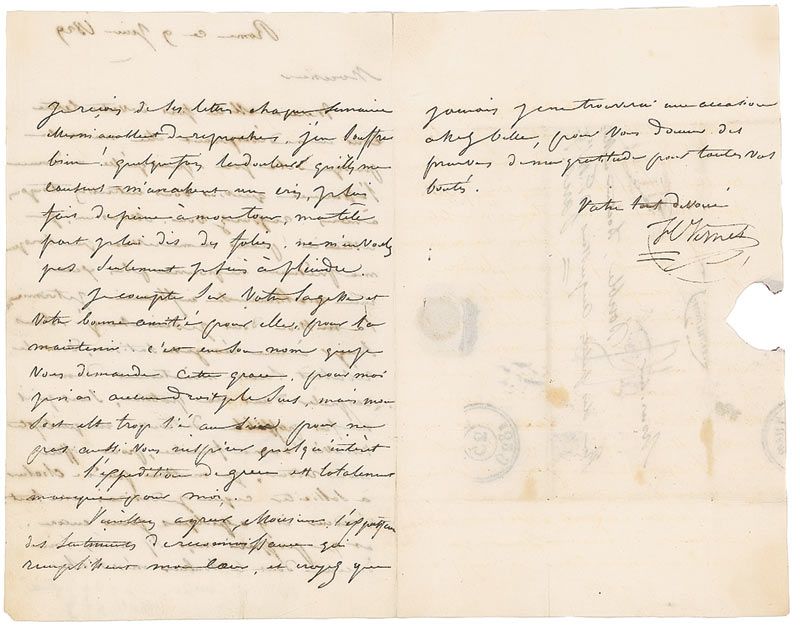 Je reçois de ses lettres chaque semaine
Elles m'accablent de reproches. j'en souffre
bien! quelquefois la douleur qu'elles me
causent m'arrachent un cris, je lui
fais de peine à mon tour, ma tête
part je lui dis des folies. ne m'en voulez
pas seulement je suis à plaindre.
Je compte sur votre sagesse et
votre bonne amitié pour elle, pour la
maintenir c'est en son nom que je
vous demande cette grace, pour moi
je n'ai aucun droit je le sais, mais mon
sort est trop lié au sien pour ne
pas aussi vous inspirer quelqu'interêt
l'expédition de grece est totalement
manquée pour moi.
Veuillez agréer, Monsieur l'expression
des sentiments de reconnaissance qui
remplissent mon cœur, et croyez que
jamais je ne trouverai une occasion
assez belle, pour vous donner des
preuves de ma gratitude pour toutes vos
bontés.
Votre tout dévoué
H Vernet